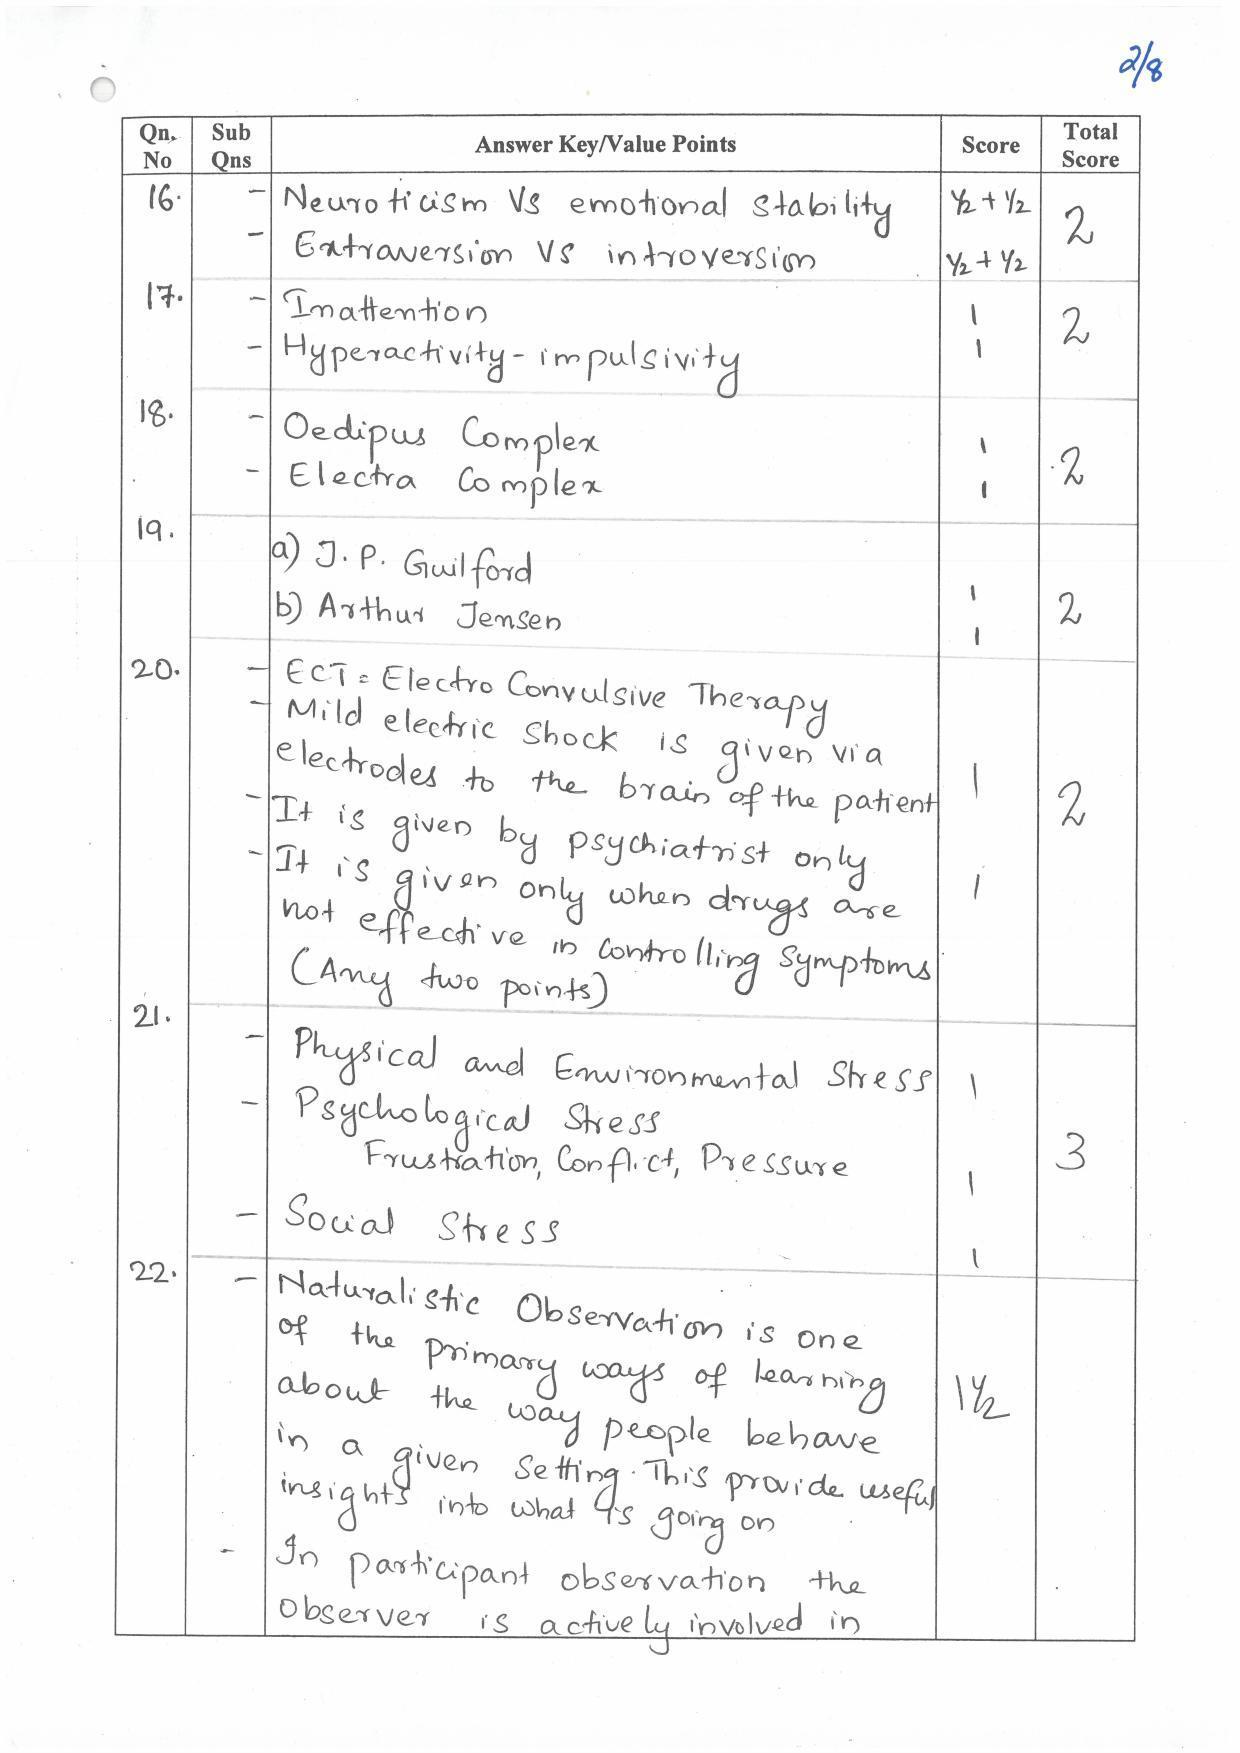 2/8
Qn. No | Sub Qns | Answer Key/Value Points | Score | Total Score
16. - Neuroticism Vs emotional stability ½ + ½ 2
- Extraversion VS introversion ½ + ½
17. - Inattention 1 2
- Hyperactivity - impulsivity 1
18. - Oedipus Complex 1 2
- Electra Complex 1
19. a) J. P. Guilford 1 2
b) Arthur Jensen 1
20. - ECT = Electro Convulsive Therapy
- Mild electric shock is given via
electrodes to the brain of the patient 1 2
- It is given by psychiatrist only
- It is given only when drugs are 1
not effective in controlling symptoms
(Any two points)
21. - Physical and Environmental Stress 1
- Psychological Stress
Frustration, Conflict, Pressure 1 3
- Social Stress 1
22. - Naturalistic Observation is one
of the primary ways of learning
about the way people behave 1½
in a given setting. This provide useful
insights into what is going on
- In participant observation the
observer is actively involved in